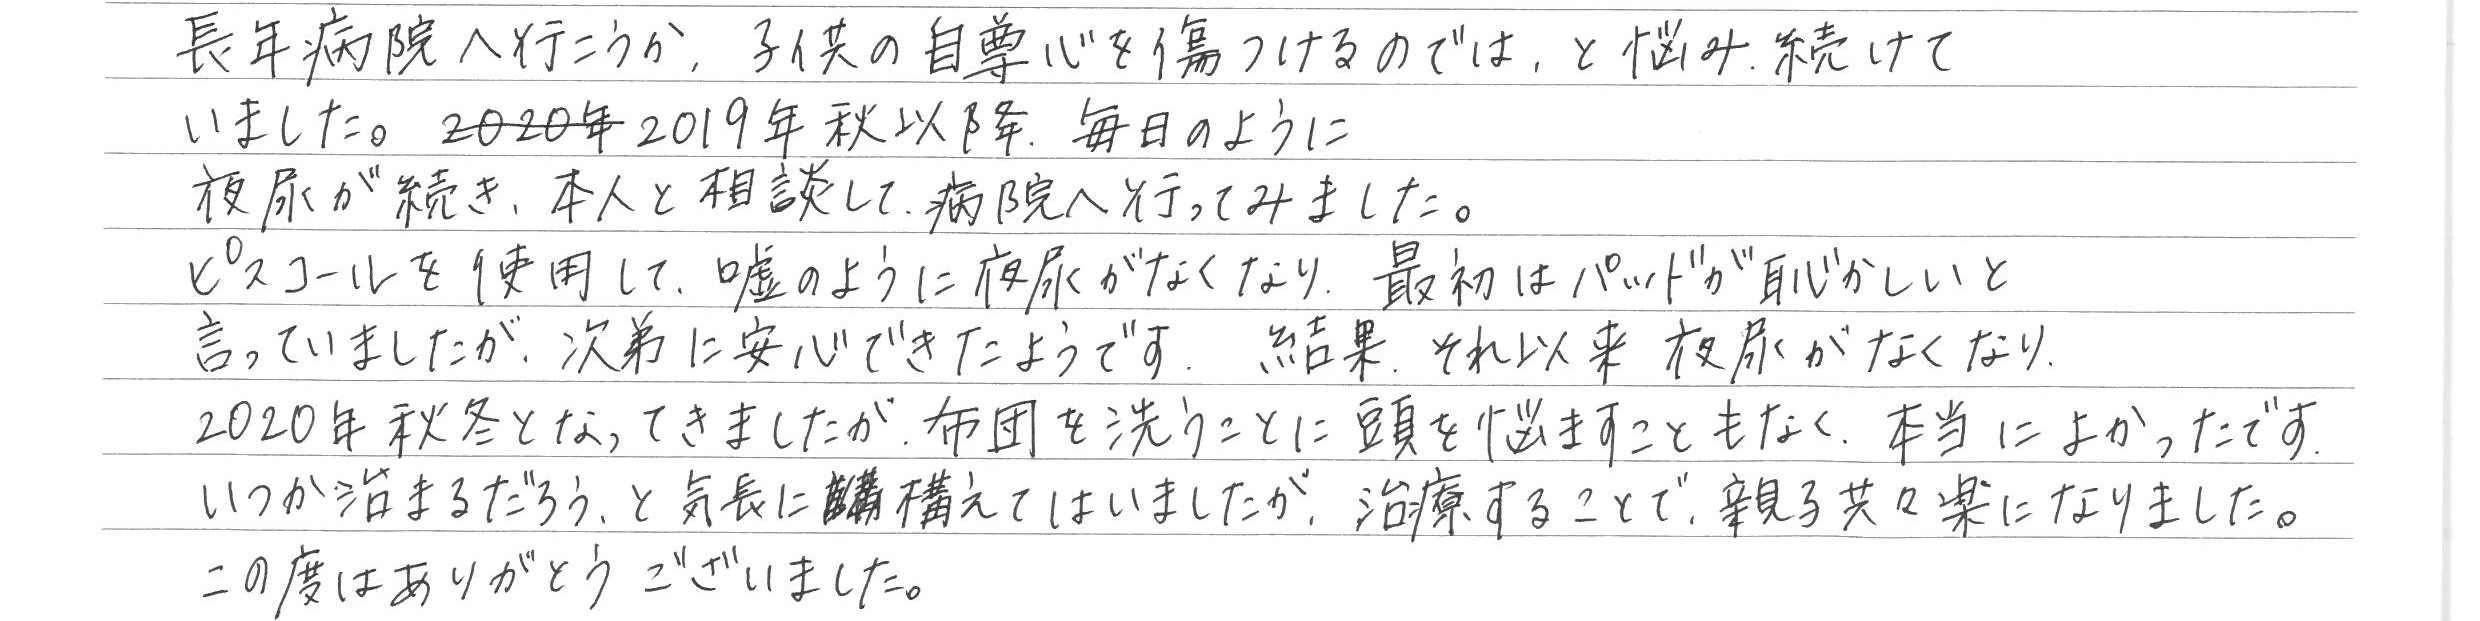 長年病院へ行こうか、子供の自尊心を傷つけるのでは、と悩み、続けて
いました。 2020年 2019年秋以降、毎日のように
夜尿が続き、本人と相談して、病院へ行ってみました。
ピスコールを使用して、嘘のように夜尿がなくなり、最初はパッドが恥かしいと
言っていましたが、次第に安心できたようです。 結果、それ以来夜尿がなくなり、
2020年秋冬となってきましたが、布団を洗うことに頭を悩ますこともなく、本当によかったです。
いつか治まるだろう、と気長に構えてはいましたが、治療することで、親子共々楽になりました。
この度はありがとうございました。